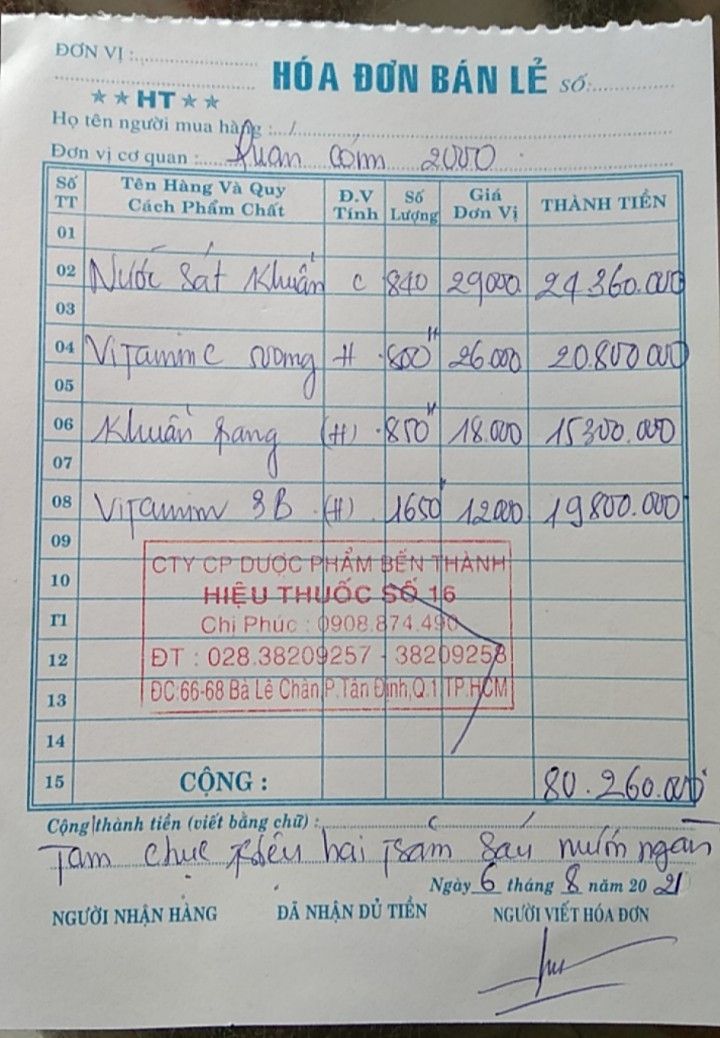 ĐƠN VỊ :
HÓA ĐƠN BÁN LẺ SỐ:
★ ★ HT ★ ★
Họ tên người mua hàng :
Đơn vị cơ quan : Quan cơm 2000
Số TT Tên Hàng Và Quy Cách Phẩm Chất Đ.V Tính Số Lượng Giá Đơn Vị THÀNH TIỀN
01
02 Nước Sát Khuẩn C 840 29000 24.360.000
03
04 Vitamin C sương H 800 H 26.000 20.800.000
05
06 Khuẩn trang (H) 850 H 18.000 15300.000
07
08 Vitamin 3B (H) 1650 12000 19800.000
09
CTY CP DƯỢC PHẨM BẾN THÀNH
10
HIỆU THUỐC SỐ 16
11
Chị Phúc : 0908.874.490
12
ĐT : 028.38209257 - 38209258
13
ĐC:66-68 Bà Lê Chân,P.Tân Định,Q.1 TP.HCM
14
15 CỘNG : 80.260.000
Cộng thành tiền (viết bằng chữ) :
Tam chục triệu hai trăm sáu mươi ngan
Ngày 6 tháng 8 năm 20 21
NGƯỜI NHẬN HÀNG ĐÃ NHẬN DỦ TIỀN NGƯỜI VIẾT HÓA ĐƠN